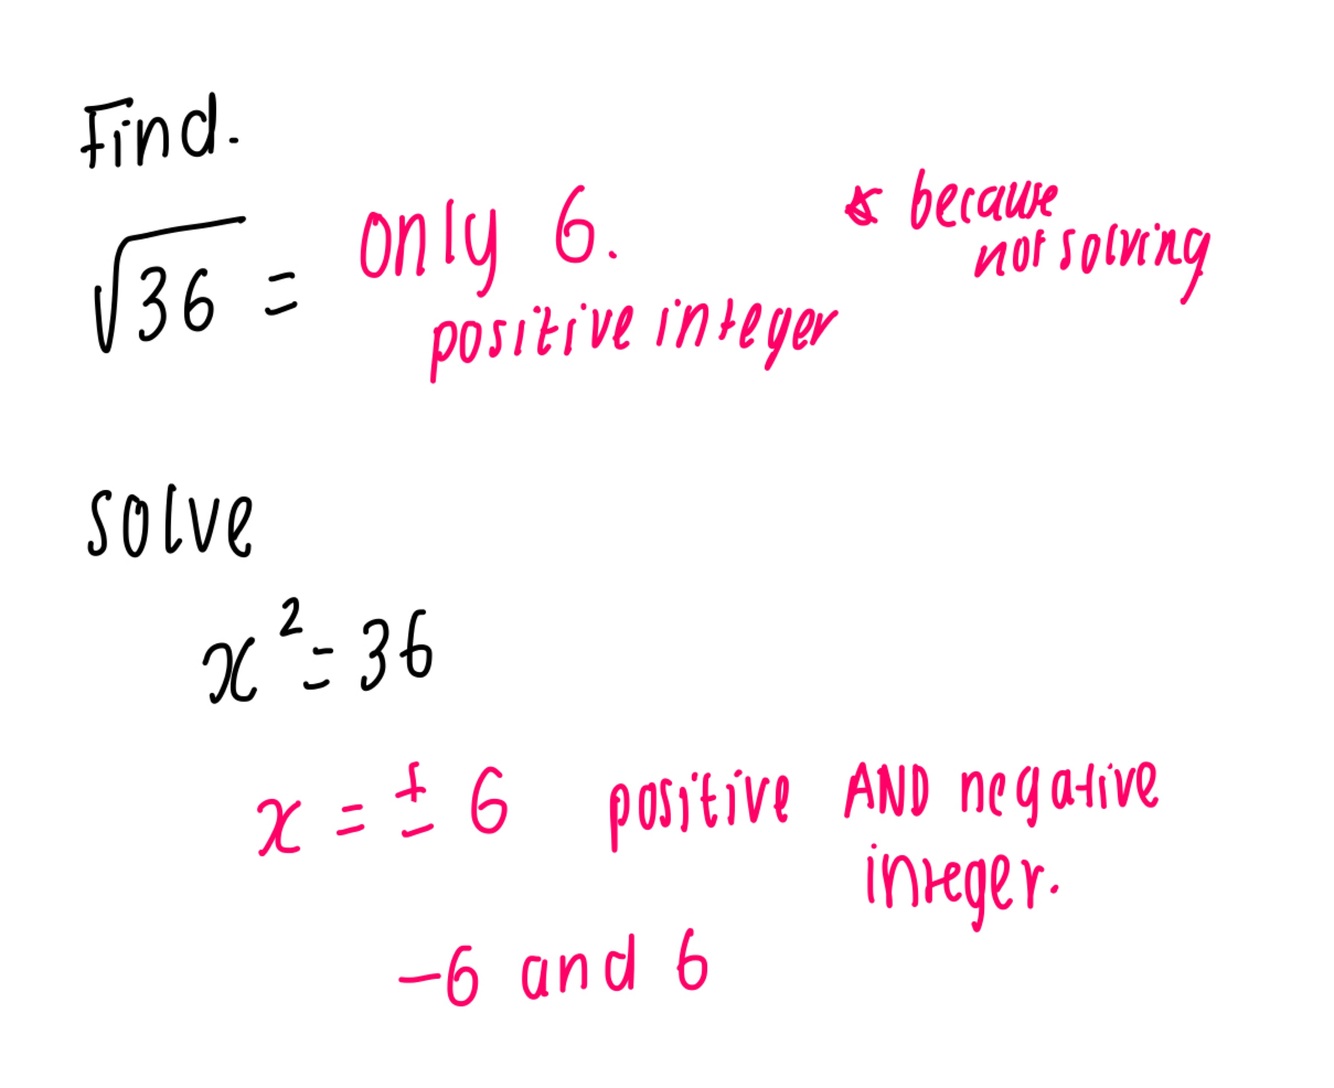 Find.
√36 = only 6.
positive integer
* because
not solving
solve
x² = 36
x = ± 6 positive AND negative
integer.
-6 and 6